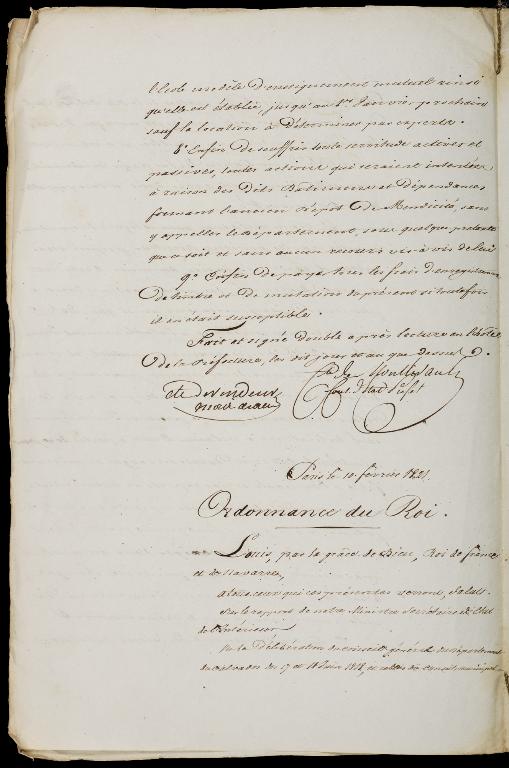 l'école modèle d'enseignement mutuel ainsi
qu'elle est établie, jusqu'au 1er Janvier prochain
sauf la location à déterminer par experts.
8° Enfin de souffrir toute servitude actives et
passives, toutes actions qui seraient intentées
à raison des dits Batimens et dépendances
formant l'ancien Dépot de Mendicité, sans
y appeller le département, sous quelque pretexte
que ce soit et sans aucun recours vis à vis de lui
9° Enfin de payer tous les frais d'enregistrement
de timbre et de mutation du présent si toutefois
il en était susceptible.
Fait et signé double après lecture au l'hôtel
de la Préfecture, les dit jour et an que dessus.
Cte de Vendeuvre
maire de Caen
Cte de Montlivault
Cons. d'Etat Préfet
Paris le 10 février 1821.
Ordonnance du Roi.
Louis, par la grâce de Dieu, Roi de france
et de Navarre,
a tous ceux qui ces présentes verront, Salut.
Sur le rapport de notre Ministre Secrétaire d'Etat
de l'Intérieur
Vu la Délibération du conseil général du département
du Calvados des 17 et 18 Juin 1818, et celles du Conseil municipal